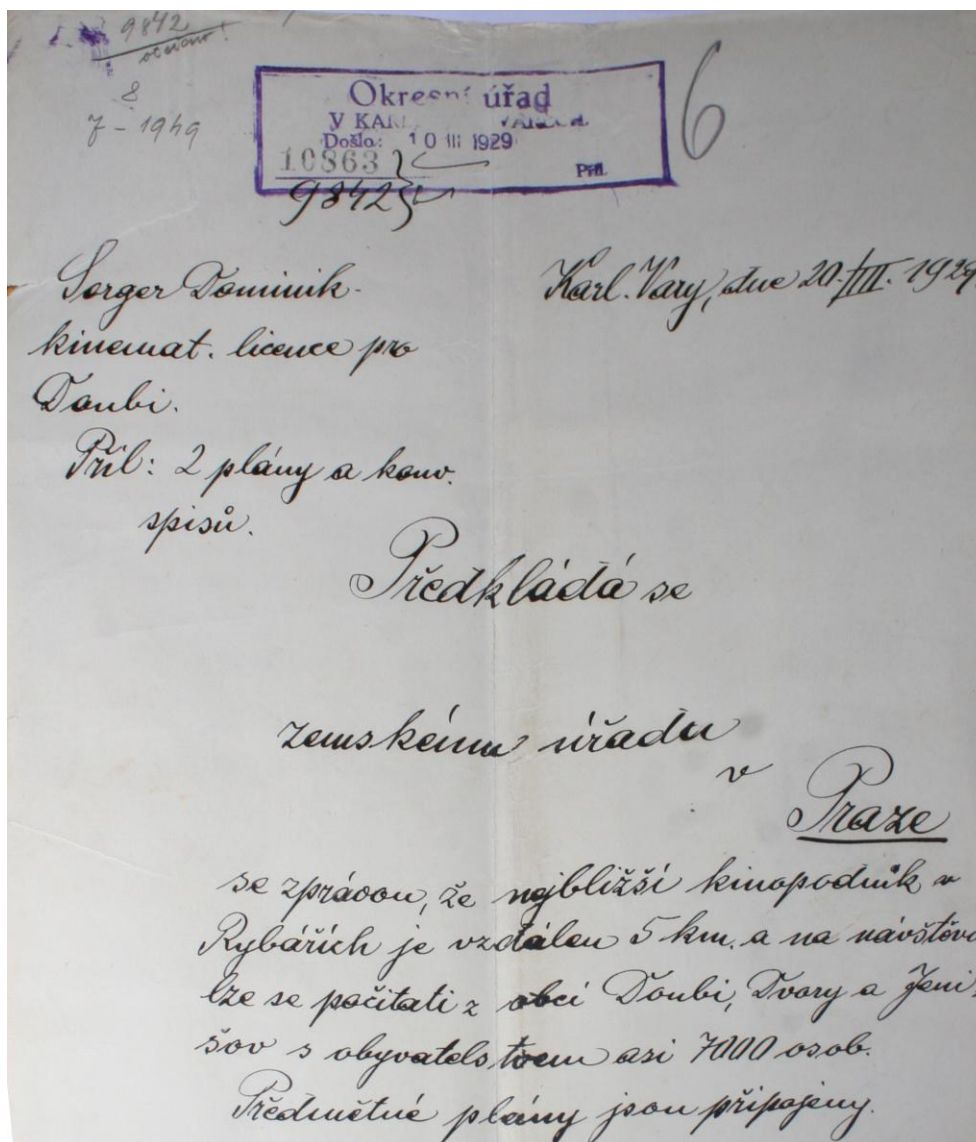 9842
8
7-1949
Okresní úřad
V KARL VARECH
Došlo: 10 III 1929
10863
Příl.
9842
6
Sorger Dominik-
kinemat. licence pro
Doubi.
Příl: 2 plány a konv.
spisů.
Karl. Vary, dne 20./III. 1929.
Předkládá se
zemskému úřadu
v
Praze
se zprávou, že nejbližší kinopodnik v
Rybářích je vzdálen 5 km. a na návštěvu
lze se počítati z obcí Doubi, Dvory a Jeni
šov s obyvatelstvem asi 7000 osob.
Předmětné plány jsou připojeny.